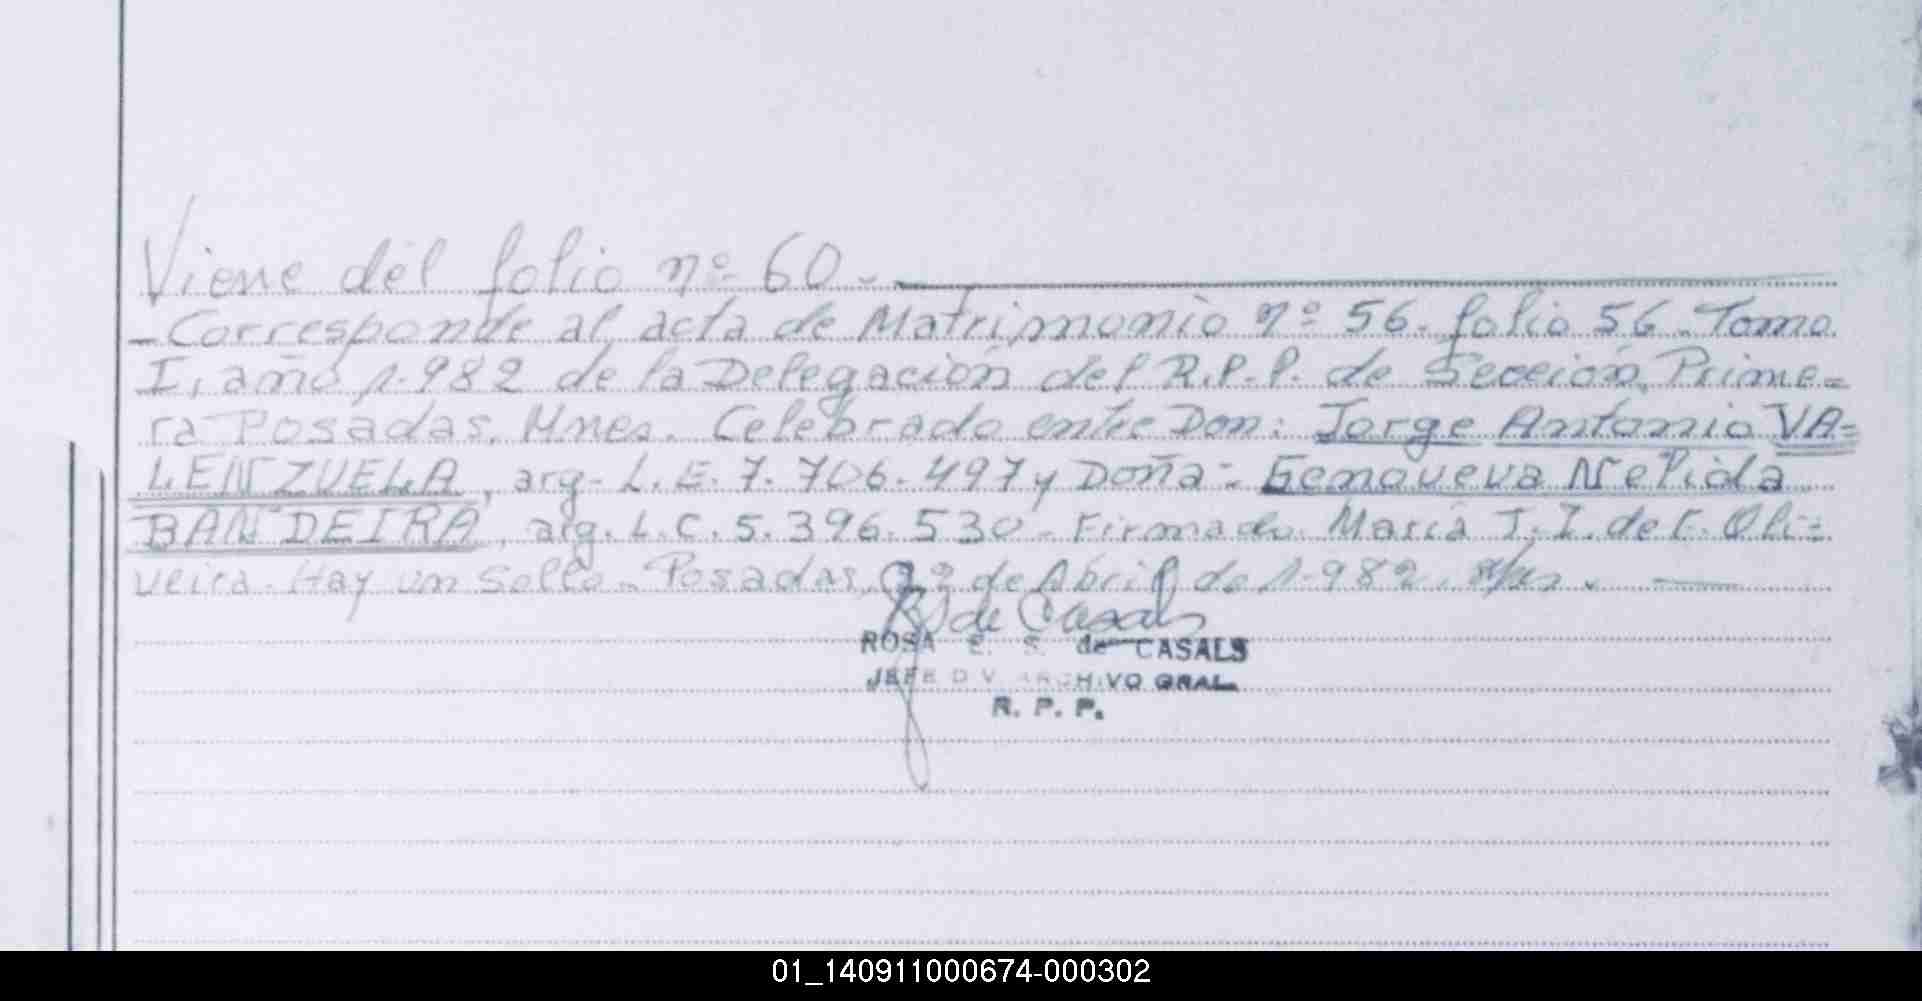 Viene del folio nº 60.-
-Corresponde al acta de Matrimonio nº 56. folio 56. Tomo
I, año 1.982 de la Delegación del R.P.P. de Sección Prime=
ra Posadas, Mnes. Celebrado entre Don: Jorge Antonio VA=
LENZUELA, arg. L.E. 7.706.497 y Doña: Genoveva Nelida
BANDEIRA, arg. L.C. 5.396.530 - Firmado. María I. de Oli=
veira. Hay un sello. Posadas, de Abril de 1.982.
R de Casals
ROSA E. S. de CASALS
JEFE DIV. ARCHIVO GRAL
R. P. P.
01_140911000674-000302